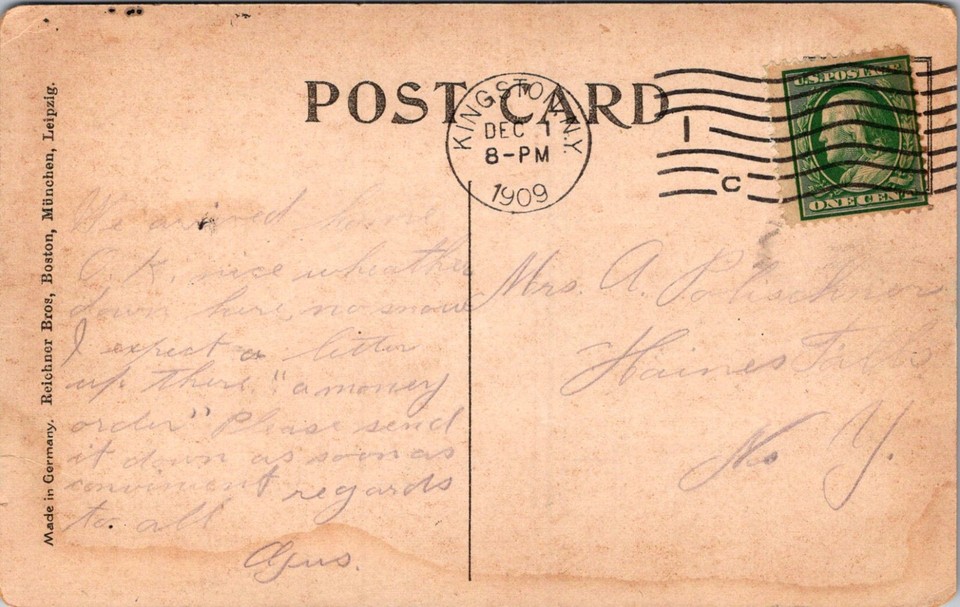 POST CARD
KINGSTON, N.Y.
DEC 1
8-PM
1909
1
C
U.S. POSTAGE
ONE CENT
Made in Germany. Reichner Bros, Boston, München, Leipzig.
We arrived home
O.K. nice wheather
down here, no snow
I expect a letter
up there "a money
order" Please send
it down as soon as
convenient regards
to all
Gus.
Mrs. A.
Haines Falls
N. Y.